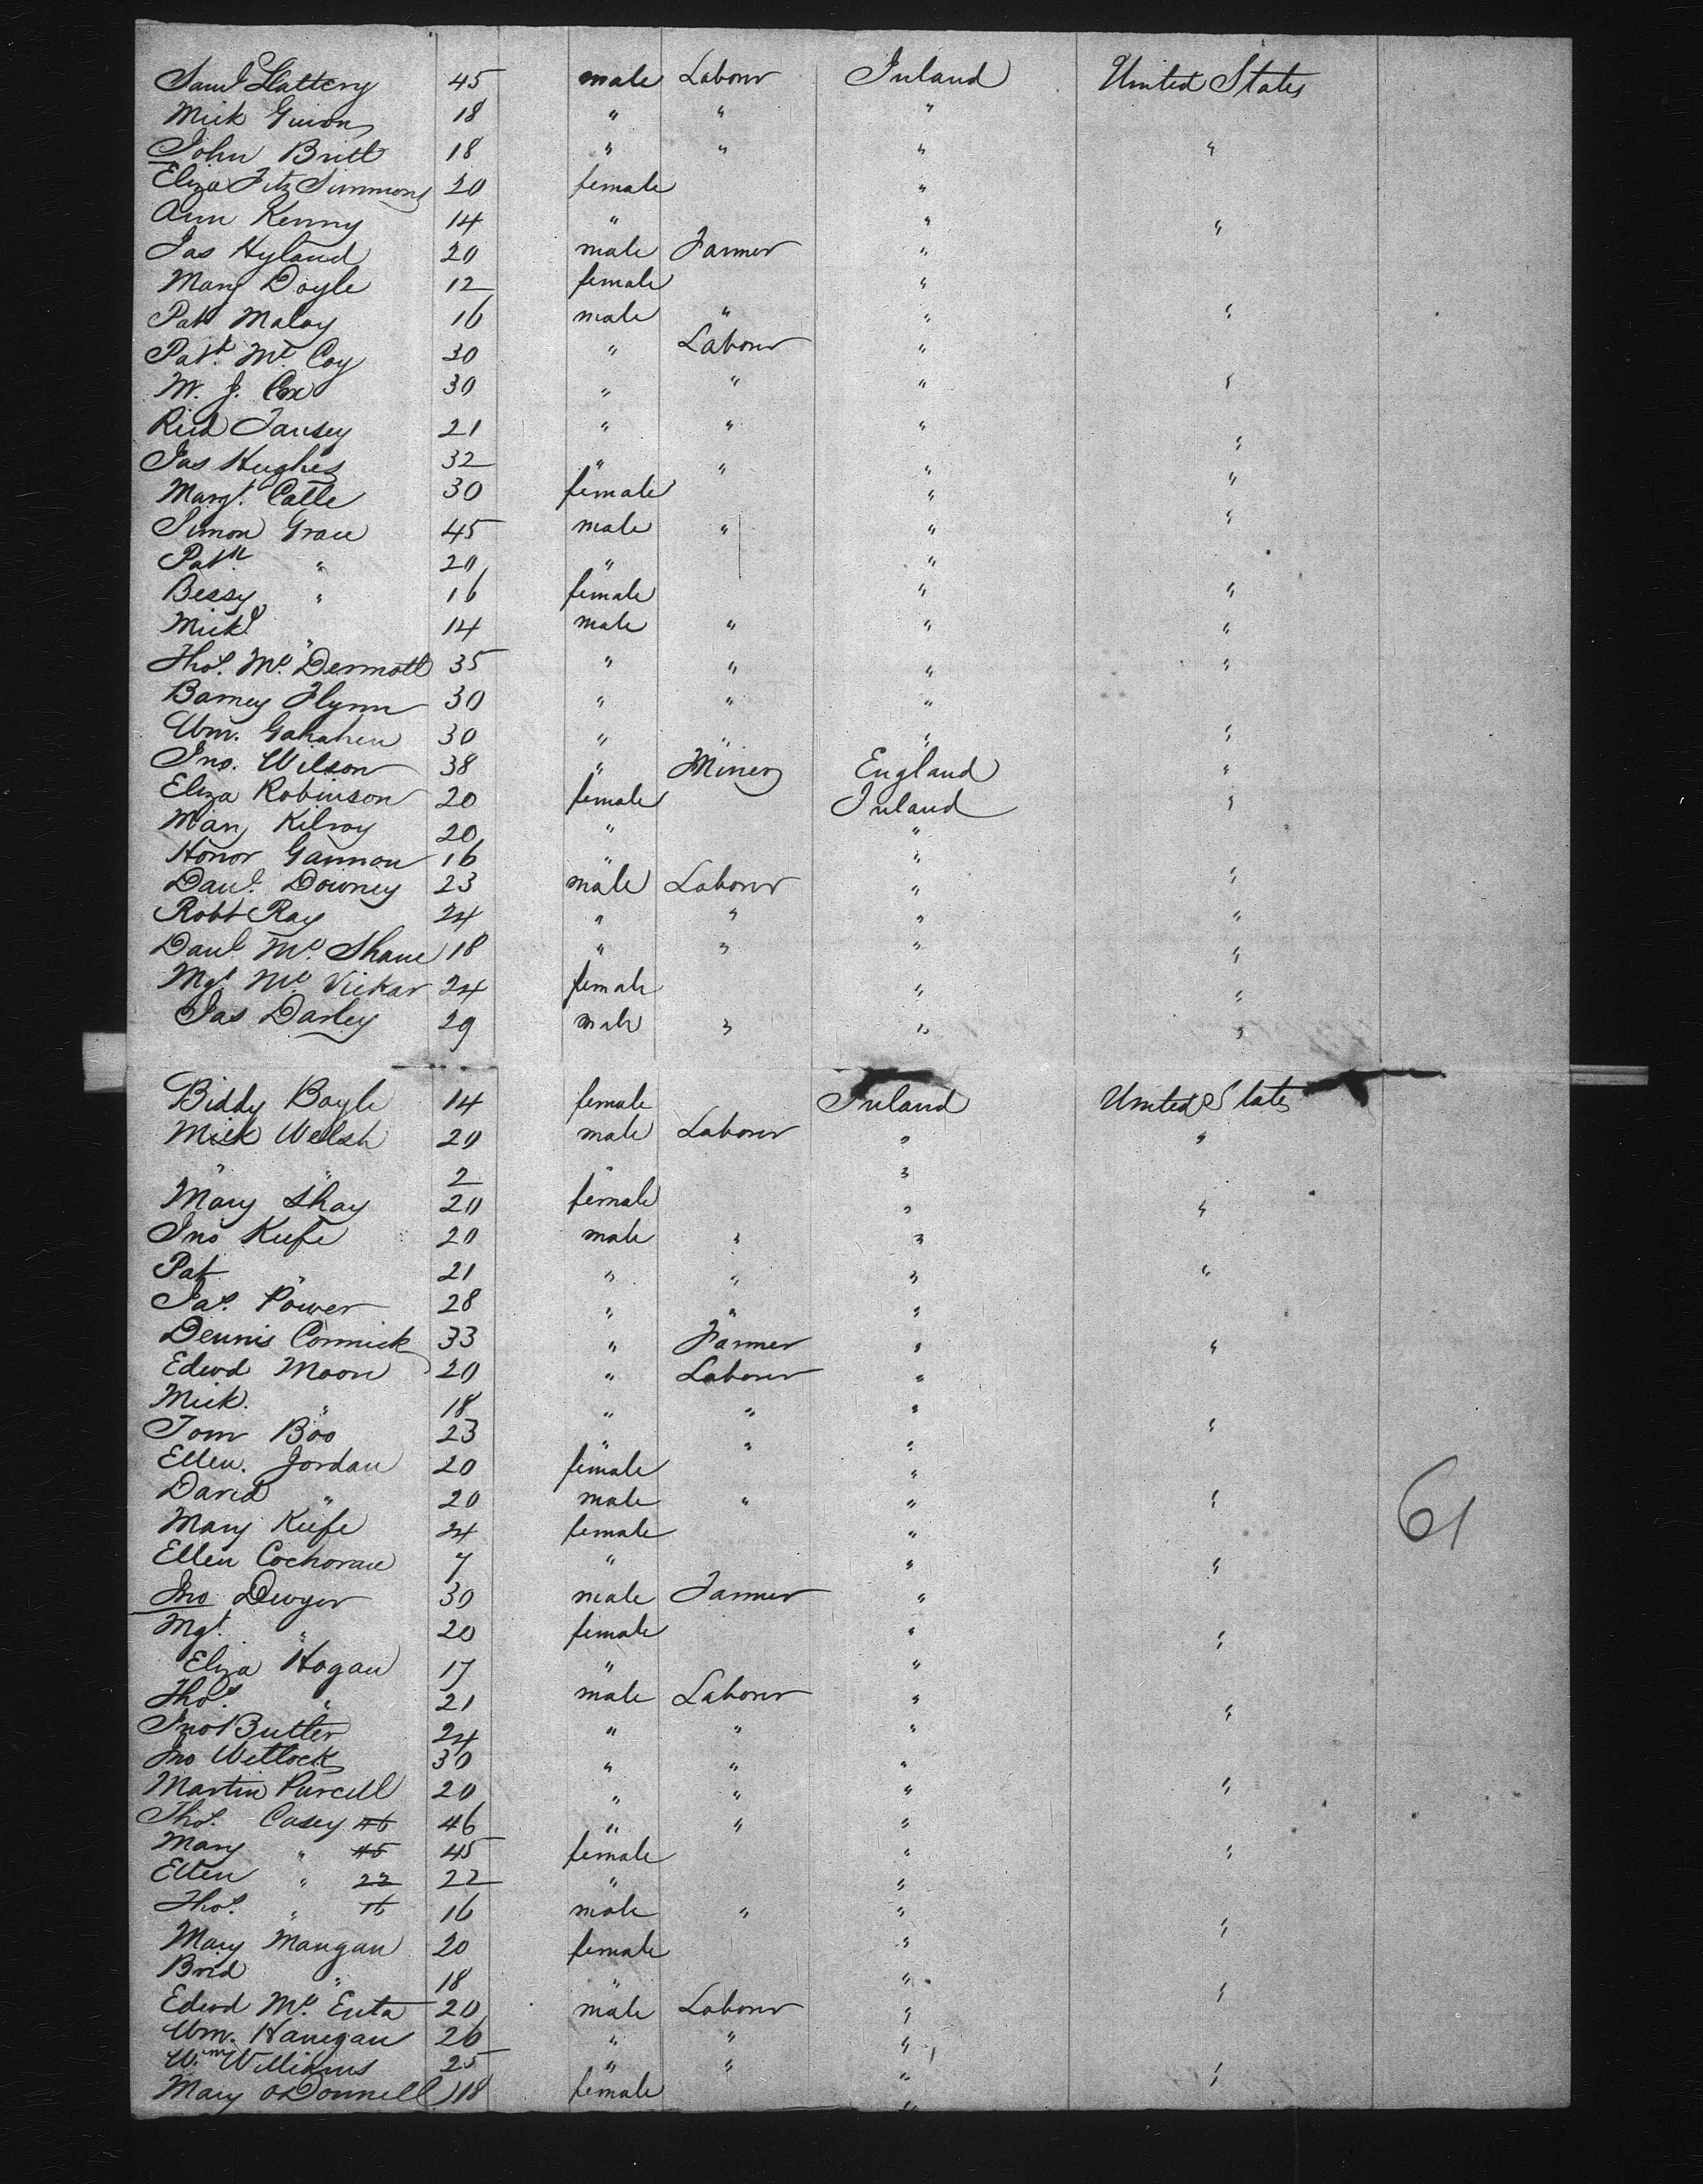 Saml Slattery 45 male Labour Ireland United States
Mick 18 " " "
John Britt 18 " " " "
Eliza Fitz Simmons 20 female "
Ann Kenny 14 " " "
Jas Hyland 20 male Farmer "
Mary Doyle 12 female "
Patk Maloy 16 male " " "
Patk Mc Coy 30 " Labour "
W. J. Cox 30 " " " "
Richd 21 " " " "
Jas Hughes 32 " " " "
Margt. 30 female " "
Simon Grace 45 male " "
Patk " 20 " "
Bessy " 16 female " "
Mickl " 14 male " " "
Thos. Mc. Dermott 35 " " " "
Barney Flynn 30 " " "
Wm. Gahahen 30 " " " "
Jno. Wilson 38 " Miner England "
Eliza Robinson 20 female Ireland "
Mary Kilroy 20 " "
Honor Gannon 16 " "
Danl. Downey 23 male Labour " "
Robt Ray 24 " " " "
Danl Mc. Shane 18 " " " "
Mgt. Mc. Vickar 24 female " "
Jas Darley 29 male " " "
Biddy Boyle 14 female Ireland United States
Mick Welsh 20 male Labour " "
" " 2 " "
Mary Shay 20 female " "
Jno Keefe 20 male " "
Pat " 21 " " " "
Jas. Power 28 " " "
Dennis Cormick 33 " Farmer " "
Edwd Moore 20 " Labour "
Mick. " 18 " " "
Tom Boo 23 " " " "
Ellen. Jordan 20 female "
David " 20 male " " "
Mary Keefe 24 female "
Ellen Cochoran 7 " " "
Jno Dwyer 30 male Farmer "
Mgt. " 20 female " "
Eliza Hogan 17 " "
Thos. " 21 male Labour " "
Jno Butler 24 " " "
Jno Wetlock 30 " " "
Martin Purcell 20 " " " "
Thos. Casey 46 46 " " "
Mary " 45 45 female " "
Ellen " 22 22 " "
Thos. " 16 16 male " " "
Mary Mangan 20 female "
Brid " 18 " " "
Edwd Mc. Enta 20 male Labour "
Wm. Hanegan 26 " " "
Wm Williams 25 " " " "
Mary O'Donnell 18 female "
61